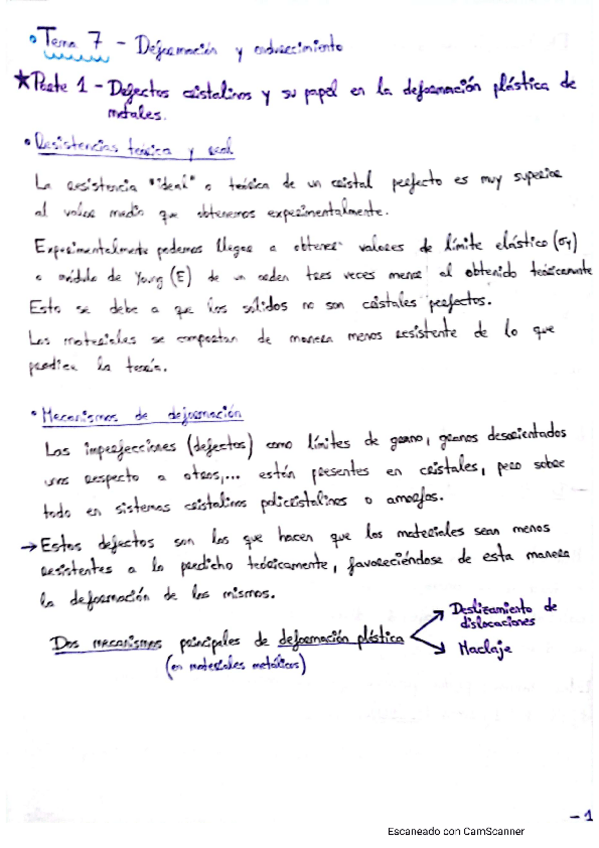 • Tema 7 - Deformación y endurecimiento
★ Parte 1 - Defectos cristalinos y su papel en la deformación plástica de
metales.
• Resistencias teórica y real
La resistencia "ideal" o teórica de un cristal perfecto es muy superior
al valor medio que obtenemos experimentalmente.
Experimentalmente podemos llegar a obtener valores de límite elástico (σy)
o módulo de Young (E) de un orden tres veces menor al obtenido teóricamente
Esto se debe a que los sólidos no son cristales perfectos.
Los materiales se comportan de manera menos resistente de lo que
predice la teoría.
• Mecanismos de deformación
Las imperfecciones (defectos) como límites de grano, granos desorientados
unos respecto a otros,... están presentes en cristales, pero sobre
todo en sistemas cristalinos policristalinos o amorfos.
→ Estos defectos son los que hacen que los materiales sean menos
resistentes a lo predicho teóricamente, favoreciéndose de esta manera
la deformación de los mismos.
Dos mecanismos principales de deformación plástica
(en materiales metálicos)
Deslizamiento de
dislocaciones
Maclaje
- 1
Escaneado con CamScanner